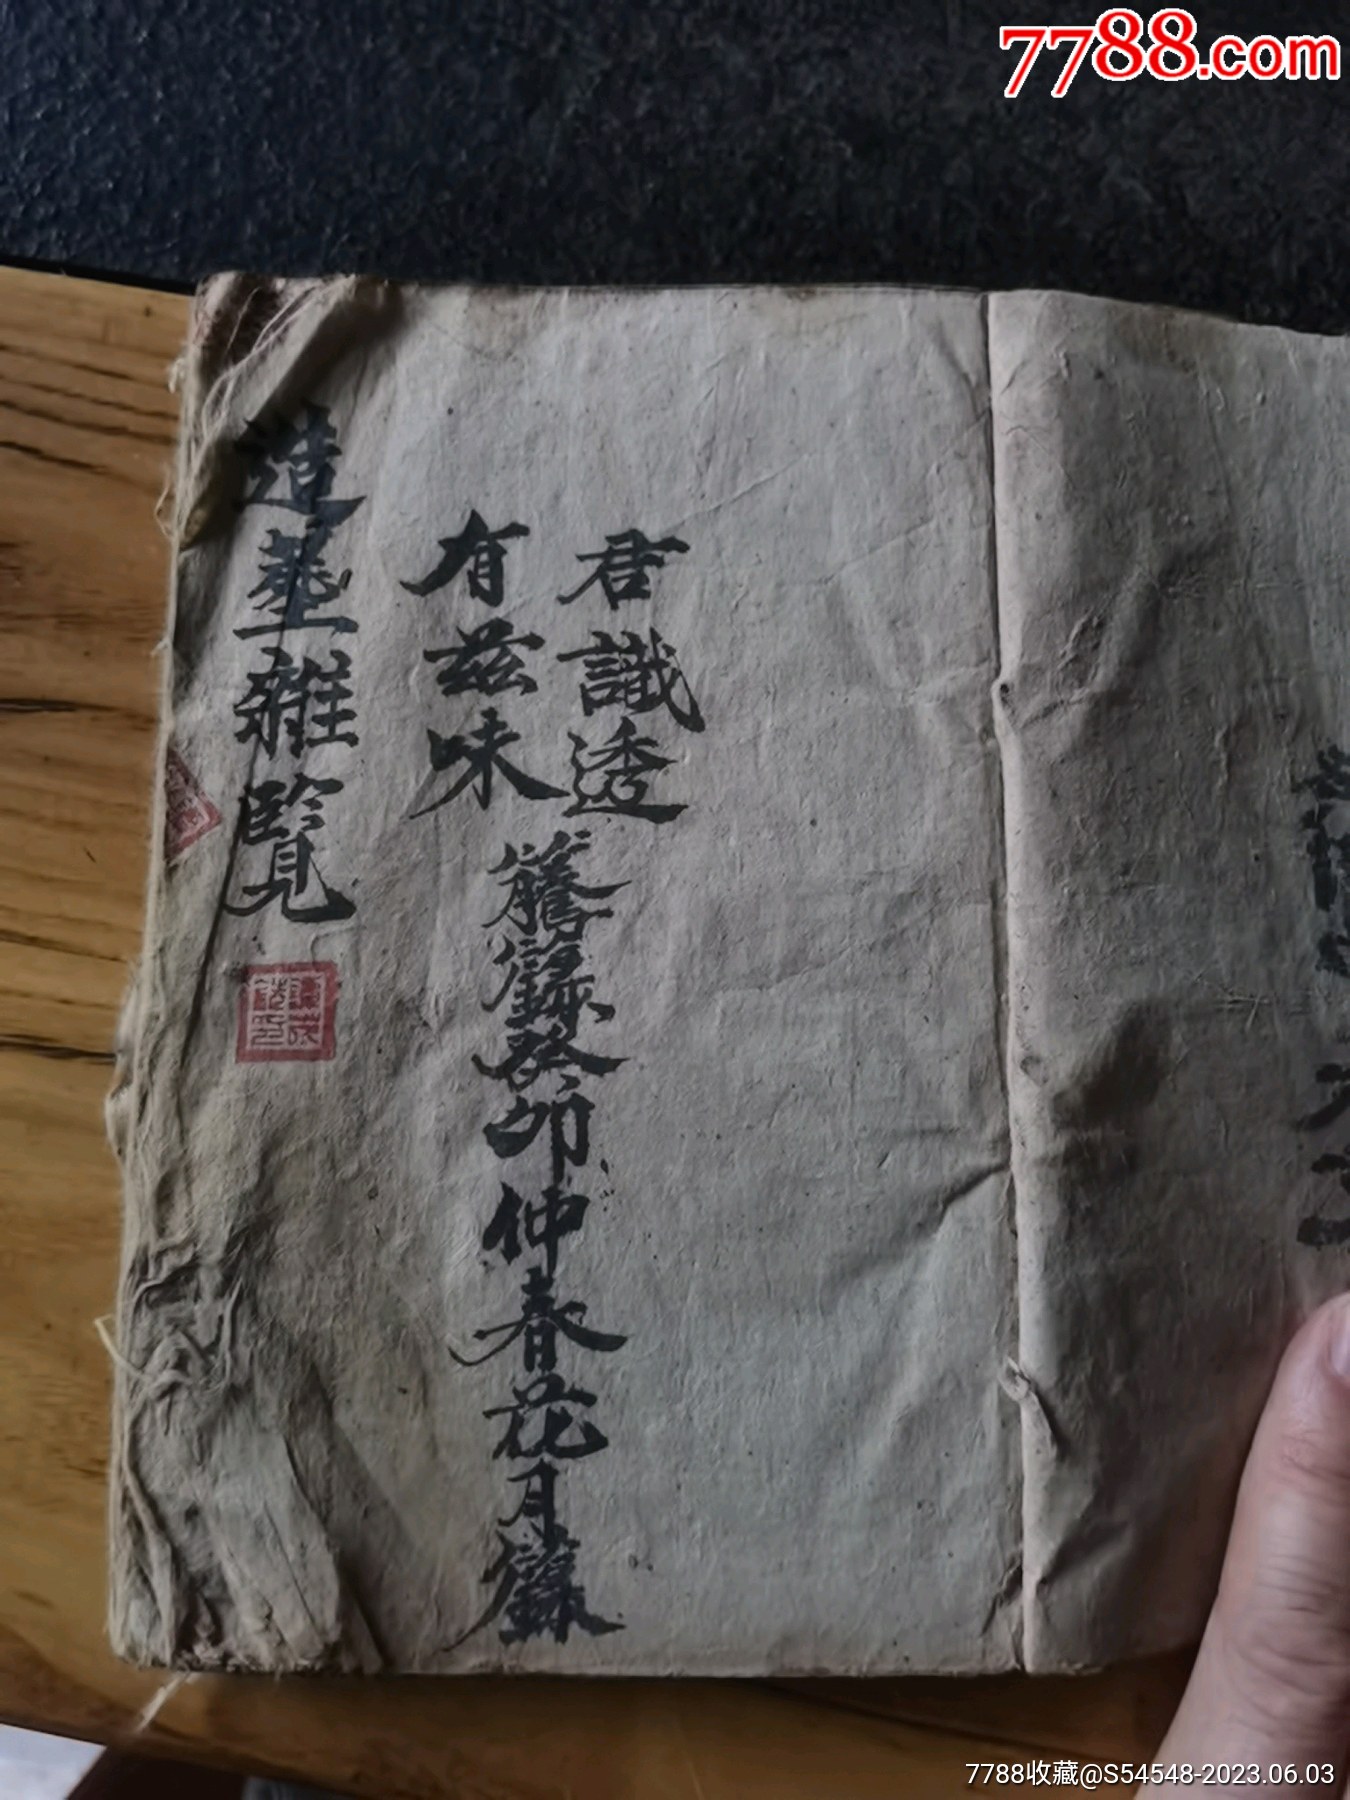 7788.com
君識透
有兹味
謄籙癸卯仲春花月籙
造墓雜覽
7788收藏@S54548-2023.06.03